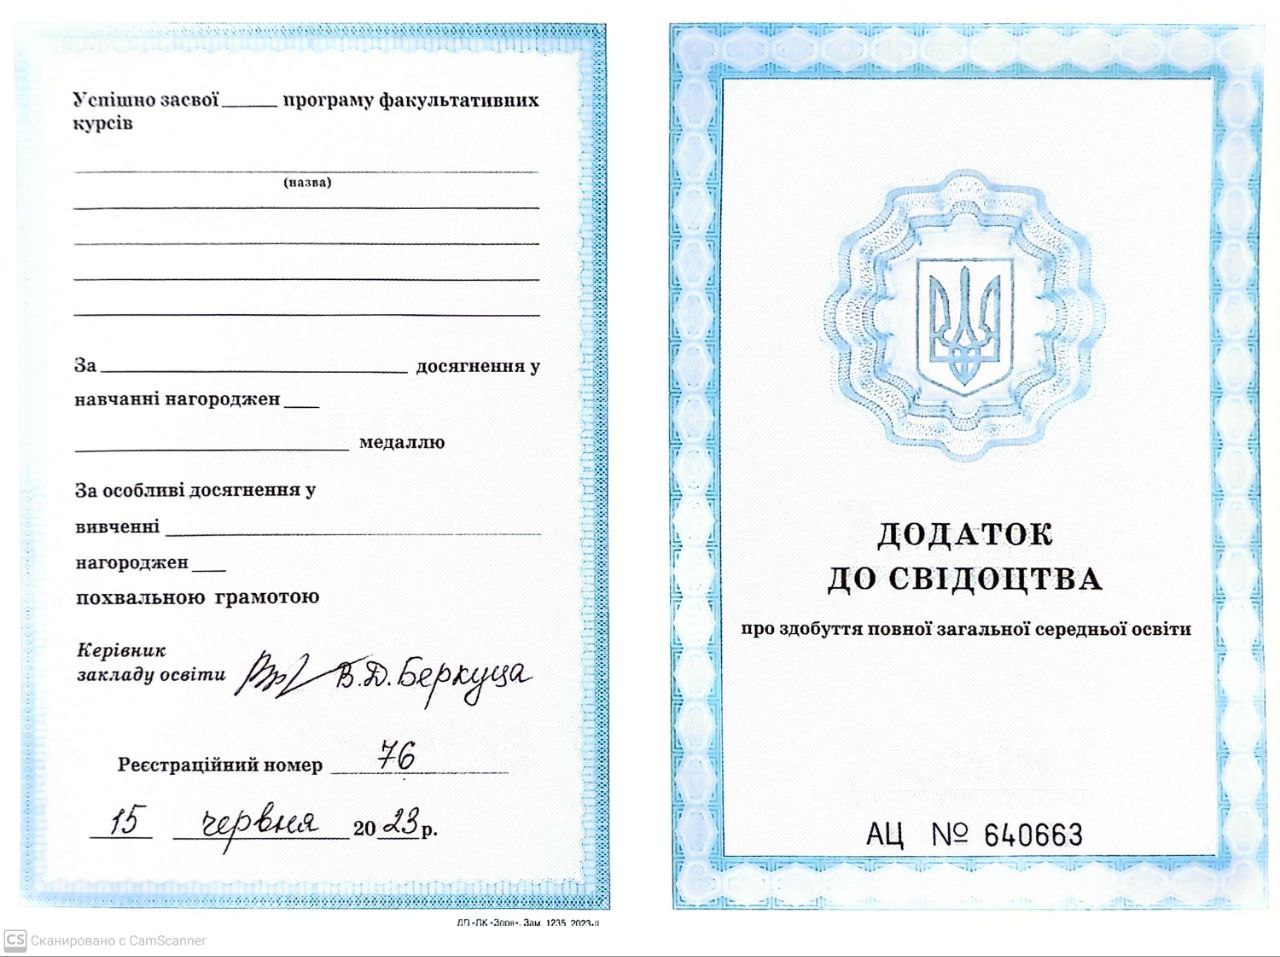 Успішно засвої_____ програму факультативних
курсів
(назва)
За ______________ досягнення у
навчанні нагороджен____
______________ медаллю
За особливі досягнення у
вивченні ______________
нагороджен____
похвальною грамотою
Керівник
закладу освіти В.Д.Беркуца
Реєстраційний номер 76
15 червня 2023 р.
ДП «ПК «Зоря». Зам. 1235. 2023-II
ДОДАТОК
ДО СВІДОЦТВА
про здобуття повної загальної середньої освіти
АЦ № 640663
CS Сканировано с CamScanner